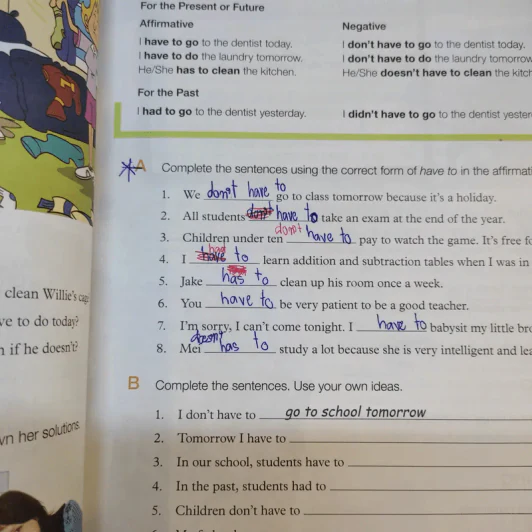 For the Present or Future
Affirmative Negative
I have to go to the dentist today. I don't have to go to the dentist today.
I have to do the laundry tomorrow. I don't have to do the laundry tomorrow
He/She has to clean the kitchen. He/She doesn't have to clean the
For the Past
I had to go to the dentist yesterday. I didn't have to go to the dentist
A Complete the sentences using the correct form of have to in the
1. We don't have to go to class tomorrow because it's a holiday.
2. All students have to take an exam at the end of the year.
3. Children under ten don't have to pay to watch the game. It's free
4. I had to learn addition and subtraction tables when I was in
5. Jake has to clean up his room once a week.
6. You have to be very patient to be a good teacher.
7. I'm sorry, I can't come tonight. I have to babysit my little
8. Mei doesn't has to study a lot because she is very intelligent and
B Complete the sentences. Use your own ideas.
1. I don't have to go to school tomorrow
2. Tomorrow I have to
3. In our school, students have to
4. In the past, students had to
5. Children don't have to
clean Willie's
to do today?
if he doesn't?
her solutions